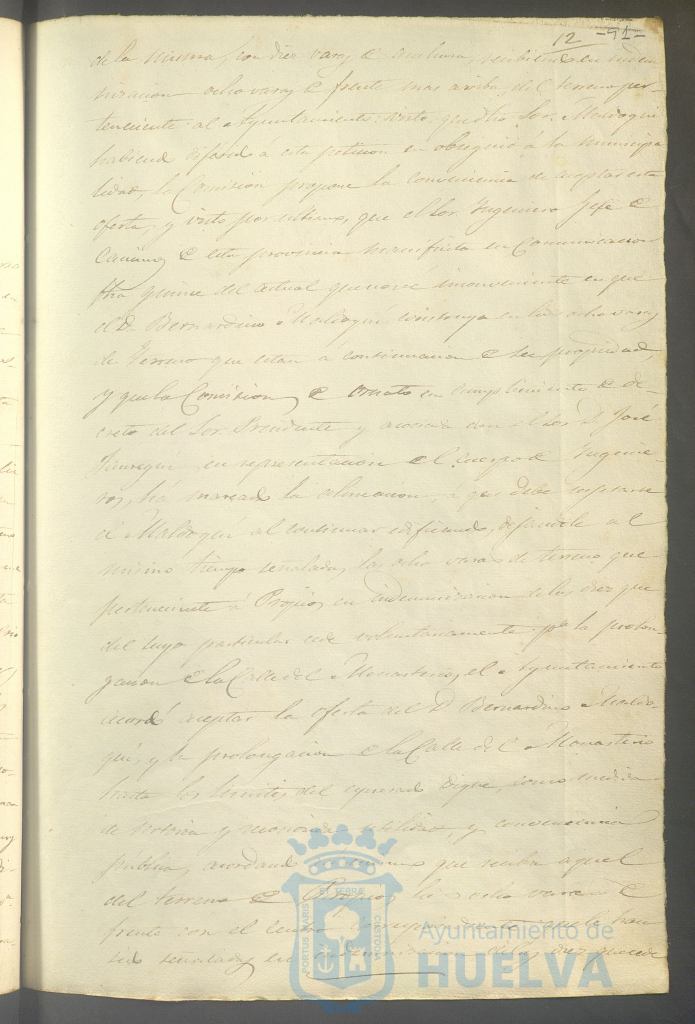 12 -91-
de la misma, con diez varas de anchura, recibiendo en indem-
nizacion ocho varas de frente mas arriba, del terreno per-
teneciente al Ayuntamiento: visto, que dho Sor. Maldoqui
habiend diferido á esta peticion en obsequio á la municipa
lidad, la Comision propone la conveniencia de aceptar esta
oferta, y visto por ultimo, que el Sor. Ingeniero Jefe de
Caminos de esta provincia manifiesta en Comunicacion
fha quince del actual que no vé inconveniente en que
el D. Bernardino Maldoqui construya en las ocho varas
de Terreno que estan á continuacion de su propiedad,
y que la Comision de ornato en cumplimiento de de-
creto del Sor. Presidente y asociada con el Sor. D. José
Jauregui en representacion del cuerpo de Ingenie-
ros, há marcado la alineacion, á que debe sujetarse
el Maldoqui al continuar edificando, dejandole al
mismo tiempo señaladas las ocho varas de terreno que
perteneciente á Propios, en indemnizacion de las diez que
del suyo particular cede voluntariamente pa. la prolon-
gacion de la Calle del Monasterio, el Ayuntamiento
acordó aceptar la oferta del D. Bernardino Maldo-
qui, y la prolongacion de la Calle del Monasterio
hasta los limites del espresado dique, como medida
de notoria y reconocida utilidad, y conveniencia
publica, acordando que reciba aquel
del terreno de Propios las ocho varas de
frente con el que le han
sido señaladas en indemnizacion de las diez que cede
PORTUS MARIS ET TERRAE CUSTODIA
Ayuntamiento de
HUELVA